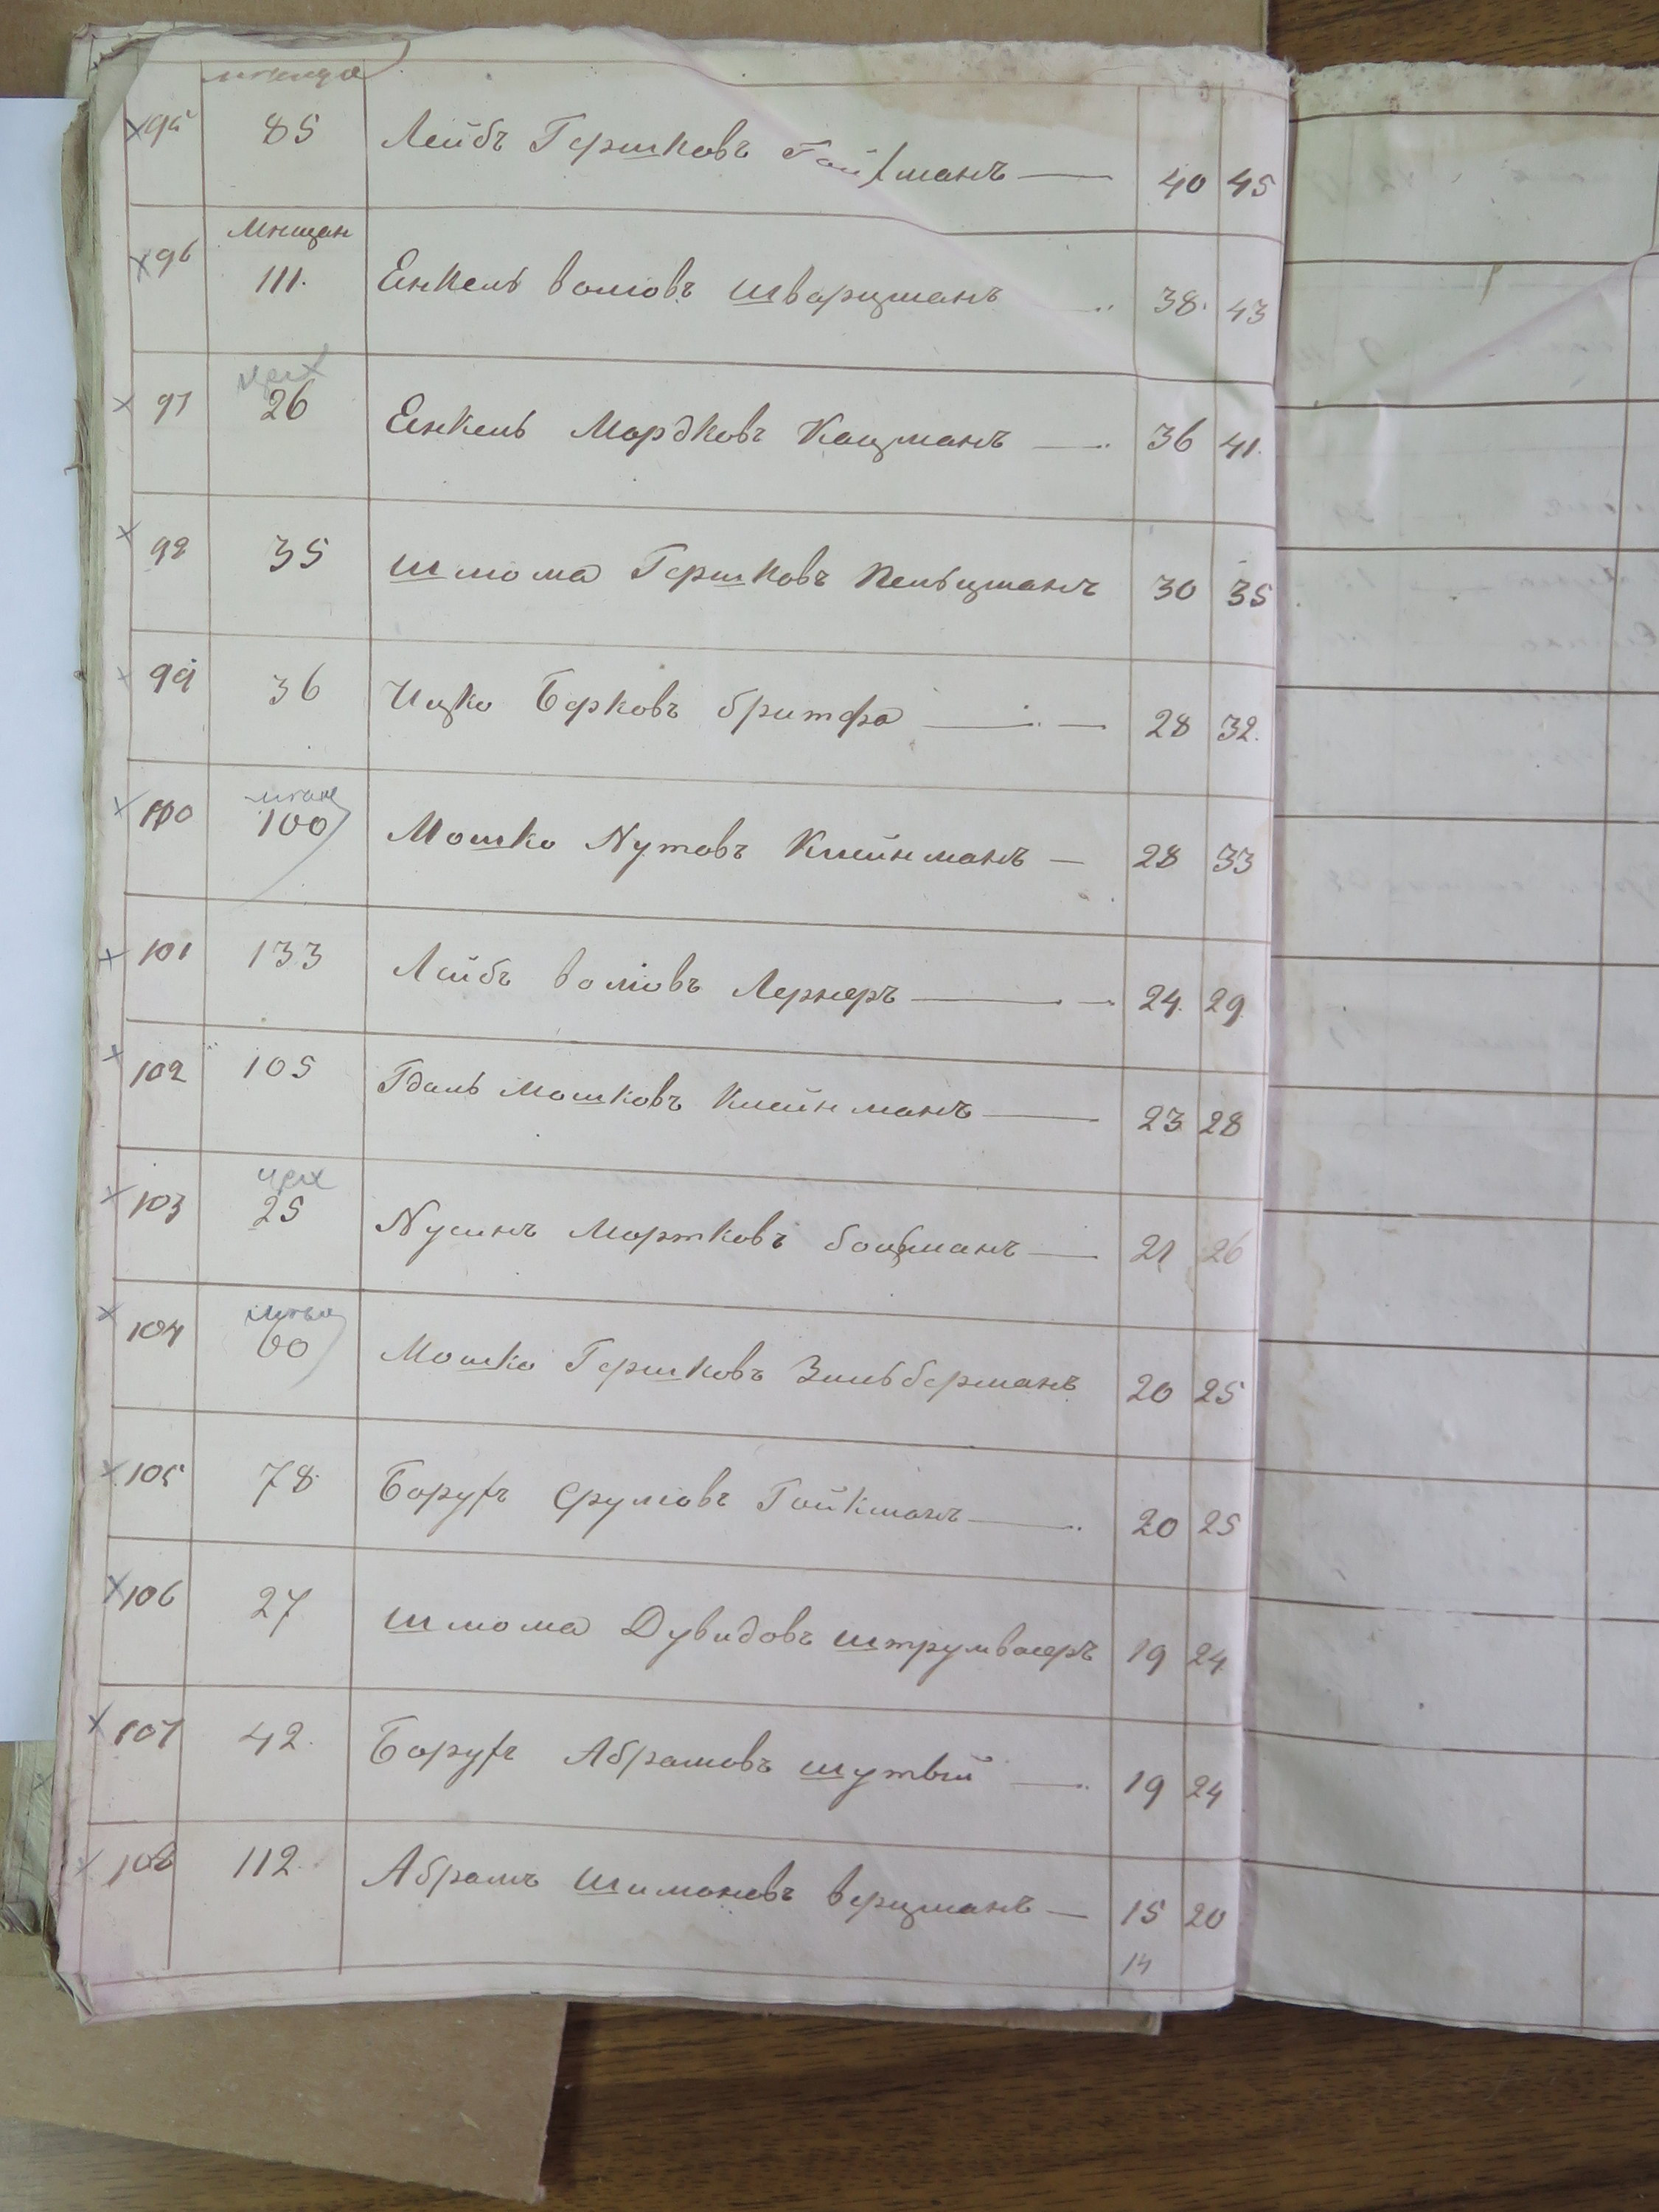 95 85 Лейбъ Гершковъ 40 45
мищан
96 111. Енкель Волковъ Шварцманъ 38. 43
цех
97 26 Енкель Мордковъ Кацманъ 36 41.
98 35 Шлюма Гершковъ Пельцманъ 30 35
99 36 Ицко Берковъ Бритфа 28 32.
100 100 Мошко Нутовъ Клейнманъ 28 33
101 133 Лейбъ Волковъ Лернеръ 24. 29
102 105 Гдаль Мошковъ Клейнманъ 23 28
цех
103 25 Нусинъ Мортковъ 21 26
104 60 Мошко Гершковъ Зильберманъ 20 25
105 78. Борухъ Срулювъ Гойкманъ 20 25
106 27 Шлюма Дувидовъ Штрумвасеръ 19 24
107 42. Борухъ Абрамовъ Шутый 19 24
108 112. Абрамъ Шимоновъ Верцманъ 15 20
14